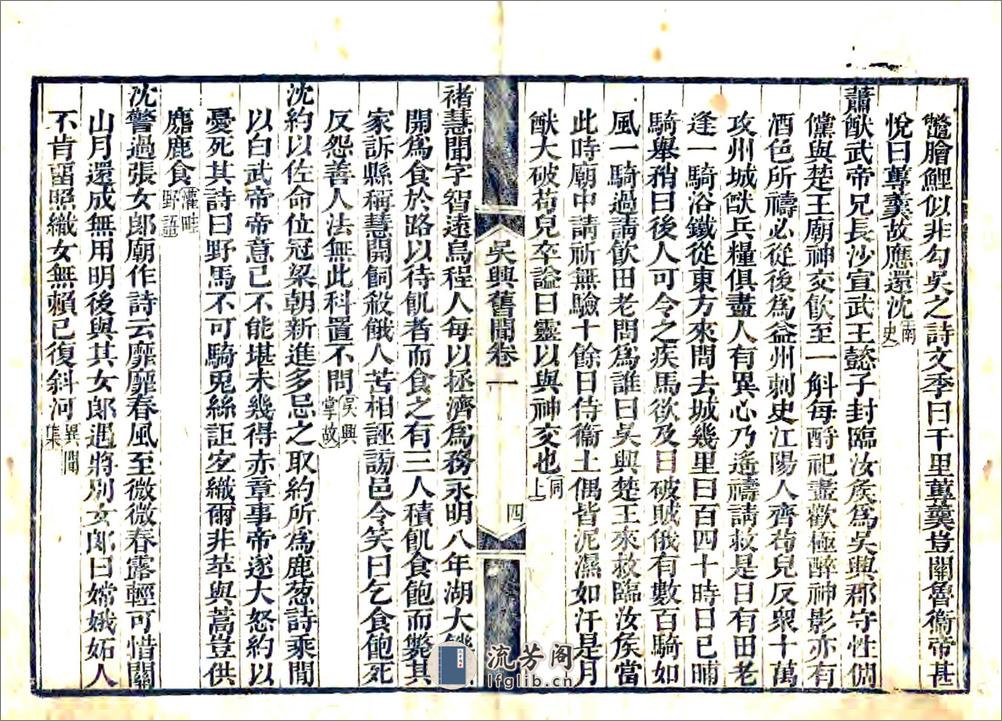 鼈膾鯉似非勾吳之詩文季曰千里蓴羹豈關魯衛帝甚
悅曰蓴羹故應還沈南史
蕭猷武帝兄長沙宣武王懿子封臨汝矦為吳興郡守性倜
儻與楚王廟神交飲至一斛每酹祀盡歡極醉神影亦有
酒色所禱必從後為益州刺史江陽人齊苟兒反衆十萬
攻州城猷兵糧俱盡人有異心乃遙禱請救是日有田老
逢一騎浴鐵從東方來問去城幾里曰百四十時日已晡
騎舉矟曰後人可令之疾馬欲及日破賊俄有數百騎如
風一騎過請飲田老問為誰曰吳興楚王來救臨汝矦當
此時廟中請祈無驗十餘日侍衛土偶皆泥濕如汗是月
猷大破苟兒卒謚曰靈以與神交也同上
吳興舊聞卷一
四
褚慧開字智遠烏程人每以拯濟為務永明八年湖大饑
開為食於路以待飢者而食之有三人積飢食飽而斃其
家訴縣稱慧開飼殺餓人苦相誣謗邑令笑曰乞食飽死
反怨善人法無此科置不問吳興掌故
沈約以佐命位冠梁朝新進多忌之取約所為鹿葱詩乘間
以白武帝帝意已不能堪未幾得赤章事帝遂大怒約以
憂死其詩曰野馬不可騎兎絲詎宐織爾非苹與蒿豈供
麏鹿食灌畦野語
沈警過張女郎廟作詩云靡靡春風至微微春露輕可惜關
山月還成無用明後與其女郎遇將別女郎曰嫦娥妬人
不肯畱照織女無賴已復斜河異聞集
流芳阁
lfglib.cn